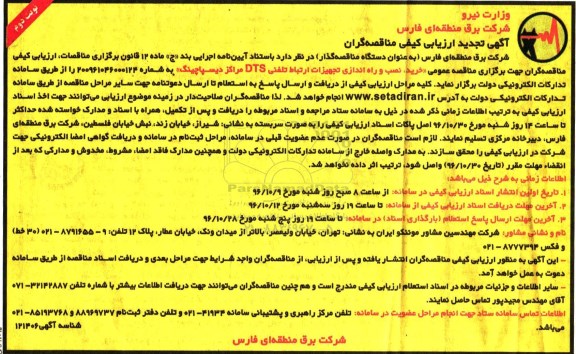 نوبت دوم
وزارت نیرو
شرکت برق منطقه‌ای فارس
آگهی تجدید ارزیابی کیفی مناقصه‌گران
شرکت برق منطقه‌ای فارس (به عنوان دستگاه مناقصه‌گذار) در نظر دارد باستناد آیین‌نامه اجرایی بند «ج» ماده ۱۲ قانون برگزاری مناقصات، ارزیابی کیفی
مناقصه‌گران جهت برگزاری مناقصه عمومی «خرید، نصب و راه اندازی تجهیزات ارتباط تلفنی DTS مراکز دیسپاچینگ» به شماره ۲۰۰۹۶۱۰۴۶۰۰۰۱۲۴ را از طریق سامانه
تدارکات الکترونیکی دولت برگزار نماید. کلیه مراحل ارزیابی کیفی از دریافت و ارسال پاسخ به استعلام تا ارسال دعوتنامه جهت سایر مراحل مناقصه از طریق سامانه
تدارکات الکترونیکی دولت به آدرس www.setadiran.ir انجام خواهد شد. لذا مناقصه‌گران صلاحیت‌دار در زمینه موضوع ارزیابی می‌توانند جهت اخذ اسناد
ارزیابی کیفی به ترتیب اطلاعات زمانی ذکر شده در ذیل به سامانه ستاد مراجعه و اسناد مربوطه را دریافت و پس از تکمیل، همراه با اسناد و مدارک خواسته شده حداکثر
تا ساعت ۱۳ روز شنبه مورخ ۹۶/۱۰/۳۰ اصل پاکات اسناد ارزیابی کیفی را بصورت سربسته به نشانی: شیراز، خیابان زند، نبش خیابان فلسطین، شرکت برق منطقه‌ای
فارس، دبیرخانه مرکزی تسلیم نمایند. لازم است مناقصه‌گران در صورت عدم عضویت قبلی در سامانه، مراحل ثبت‌نام در سامانه و دریافت گواهی امضا الکترونیکی جهت
شرکت در ارزیابی کیفی را محقق سازند. به مدارک واصله خارج از سامانه تدارکات الکترونیکی دولت و همچنین مدارک فاقد امضا، مشروط، مخدوش و مدارکی که بعد از
انقضاء مهلت مقرر (تاریخ ۹۶/۱۰/۳۰) واصل شود، ترتیب اثر داده نخواهد شد.
اطلاعات زمانی به شرح ذیل می‌باشد:
۱. تاریخ اولین انتشار اسناد ارزیابی کیفی در سامانه: از ساعت ۸ صبح روز شنبه مورخ ۹۶/۱۰/۹
۲. آخرین مهلت دریافت اسناد ارزیابی کیفی از سامانه: تا ساعت ۱۹ روز سه‌شنبه مورخ ۹۶/۱۰/۱۲
۳. آخرین مهلت ارسال پاسخ استعلام (بارگذاری اسناد) در سامانه: تا ساعت ۱۹ روز پنج شنبه مورخ ۹۶/۱۰/۲۸
نام و نشانی مشاور: شرکت مهندسین مشاور موننکو ایران به نشانی: تهران، خیابان ولیعصر، بالاتر از میدان ونک، خیابان عطار، پلاک ۱۲ تلفن: ۹ - ۸۷۹۱۶۵۵ - ۰۲۱ (۳۰ خط)
و فکس ۸۷۷۷۳۹۴ - ۰۲۱
- این آگهی به منظور ارزیابی کیفی مناقصه‌گران انتشار یافته و پس از ارزیابی، از مناقصه‌گران واجد شرایط جهت مراحل بعدی و دریافت اسناد مناقصه از طریق سامانه
دعوت به عمل خواهد آمد.
- سایر اطلاعات و جزئیات مربوطه در اسناد استعلام ارزیابی کیفی مندرج است و هم چنین مناقصه‌گران می‌توانند جهت دریافت اطلاعات بیشتر با شماره تلفن ۳۲۱۴۲۸۸۷-۰۷۱
آقای مهندس مجیدپور تماس حاصل نمایند.
اطلاعات تماس سامانه ستاد جهت انجام مراحل عضویت در سامانه: تلفن مرکز راهبری و پشتیبانی سامانه ۴۱۹۳۴-۰۲۱ و تلفن دفتر ثبت‌نام ۸۸۹۶۹۷۳۷ و ۸۵۱۹۳۷۶۸-۰۲۱
می‌باشد.
شناسه آگهی ۱۲۱۴۰۶
شرکت برق منطقه‌ای فارس